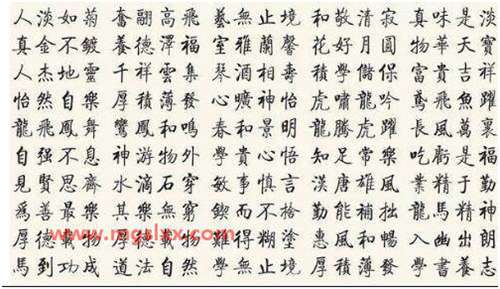 人淡如菊 奮翮高飛 藝無止境 和敬清寂 真味是淡
真金不鍍 養德澤福 室雅蘭馨 花好月圓 物華天寶
人杰地靈 千祥雲集 琴酒相壽 學儲保 富貴吉祥
怡然自樂 厚積薄發 心曠神怡 虎嘯龍吟 鳶飛魚躍
龍飛鳳舞 鸞鳳和鳴 春和景明 龍騰虎躍 長風萬裏
自强不息 神游物外 學貴心悟 知足常樂 吃虧是福
見賢思齊 水滴石穿 敏事慎言 漢唐雄風 業精于勤
爲善最樂 其樂無窮 鍥而不捨 勤能補拙 龍馬精神
厚德載物 載物 難得糊塗 惠風和暢 入幽出朗
馬到功成 道法自然 學無止境 厚積薄發 學書養志